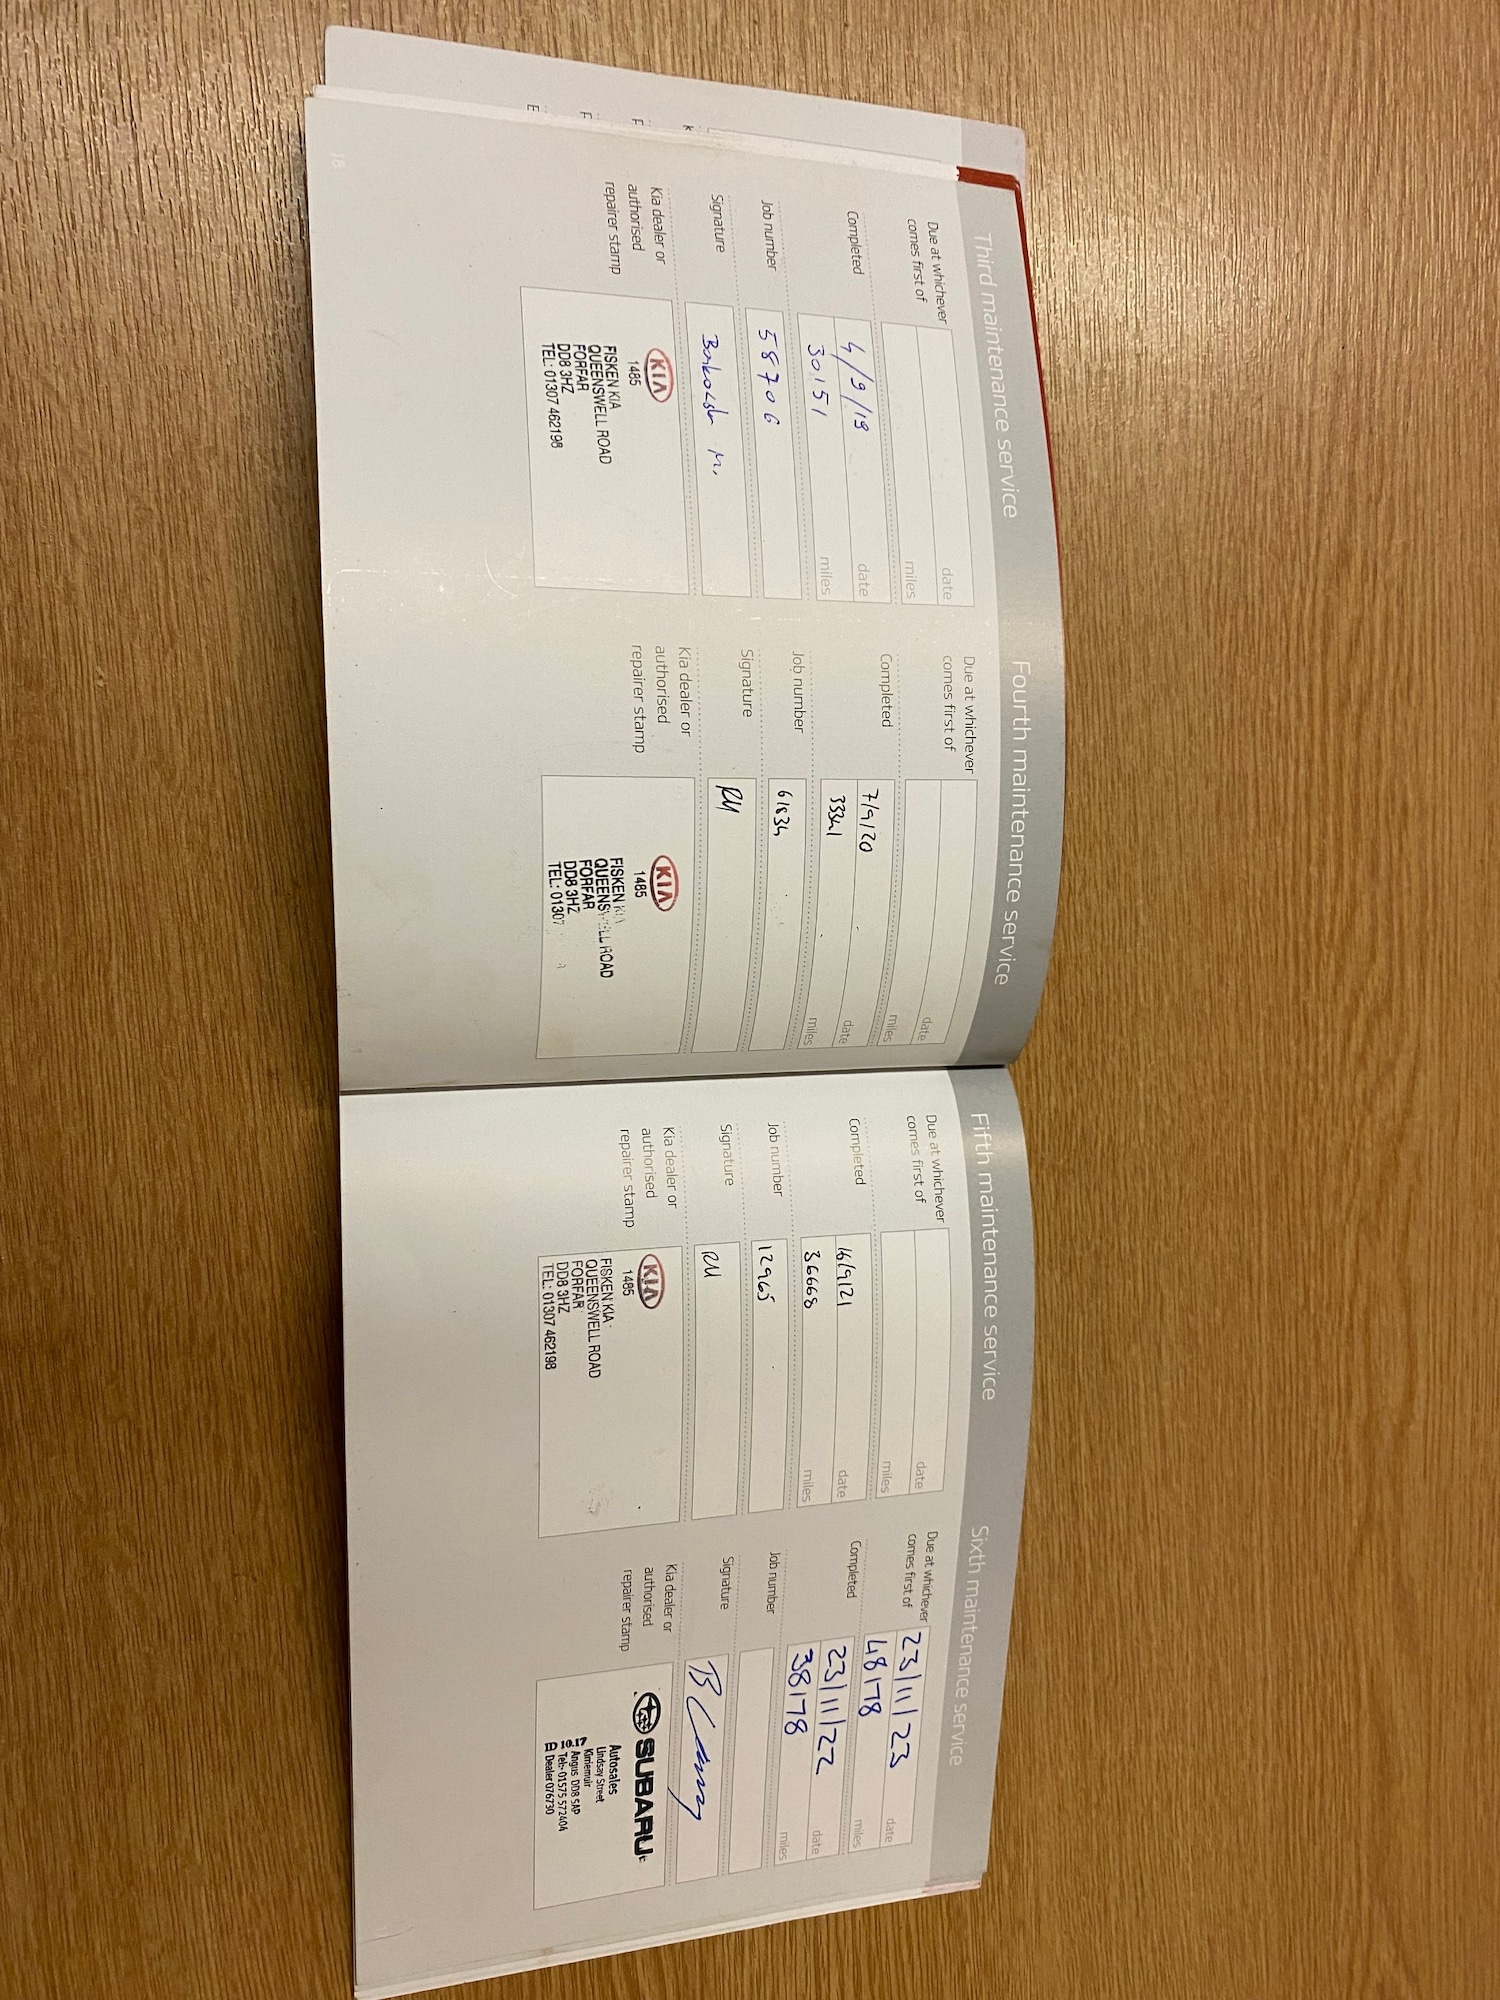 Third maintenance service
Due at whichever
comes first of
date
miles
Completed
4/9/19
date
30151
miles
Job number
58706
Signature
Kia dealer or
authorised
repairer stamp
KIA
1485
FISKEN KIA
QUEENSWELL ROAD
FORFAR
DD8 3HZ
TEL: 01307 462198
18
Fourth maintenance service
Due at whichever
comes first of
date
miles
Completed
7/9/20
date
33341
miles
Job number
61834
Signature
RM
Kia dealer or
authorised
repairer stamp
KIA
1485
FISKEN KIA
QUEENSWELL ROAD
FORFAR
DD8 3HZ
TEL: 01307
Fifth maintenance service
Due at whichever
comes first of
date
miles
Completed
16/9/21
date
36668
miles
Job number
12965
Signature
RM
Kia dealer or
authorised
repairer stamp
KIA
1485
FISKEN KIA
QUEENSWELL ROAD
FORFAR
DD8 3HZ
TEL: 01307 462198
Sixth maintenance service
Due at whichever
comes first of
23/11/23
date
48178
miles
Completed
23/11/22
date
38178
miles
Job number
Signature
Kia dealer or
authorised
repairer stamp
SUBARU
Autosales
Lindsay Street
Kirriemuir
Angus DD8 5AP
Tel:- 01575 572404
ID 10.17 Dealer 076730